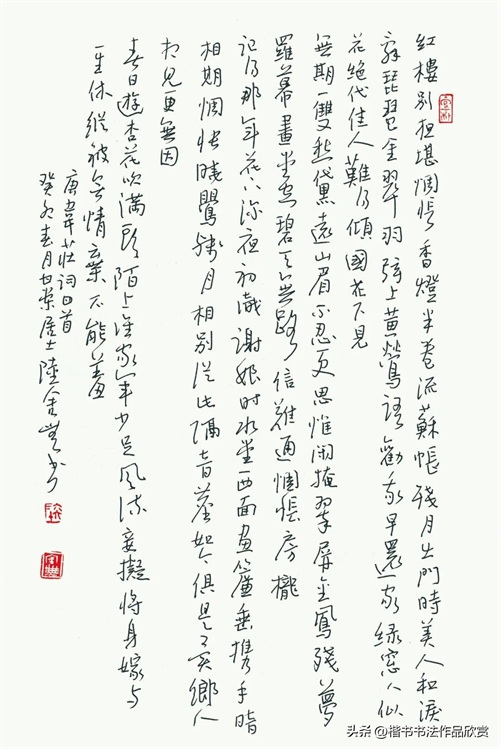 紅樓別夜堪惆悵香燈半卷流蘇帳殘月出門時美人和淚
辭琵琶金翠羽弦上黃鶯語勸我早還家綠窗人似
花絕代佳人難得傾國花下見
無期一雙愁黛遠山眉不忍更思惟閑掩翠屏金鳳殘夢
羅幕畫堂空碧天無路信難通惆悵房櫳
記得那年花下深夜初識謝娘時水堂西面畫簾垂攜手暗
相期惆悵曉鶯殘月相別從此隔音塵如今俱是異鄉人
相見更無因
春日遊杏花吹滿頭陌上誰家年少足風流妾擬將身嫁與
一生休縱被無情棄不能羞
唐韋莊詞四首
癸卯春月居士陸書
头条 @楷书书法作品欣赏